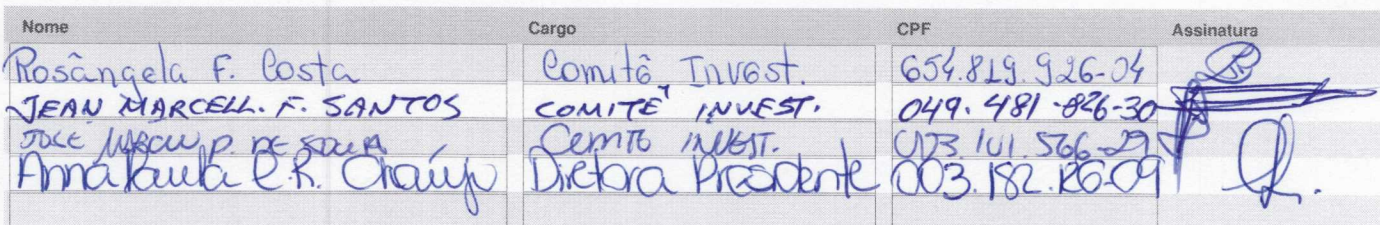 Nome Cargo CPF Assinatura
Rosângela F. Costa Comitê Invest. 654.819.926-04
JEAN MARCELL. F. SANTOS COMITÊ INVEST. 049.481-826-30
JOSÉ P. DE SOUZA INVEST. 566-29
Anna Paula C.R. Araújo Diretora Presidente 003.182.